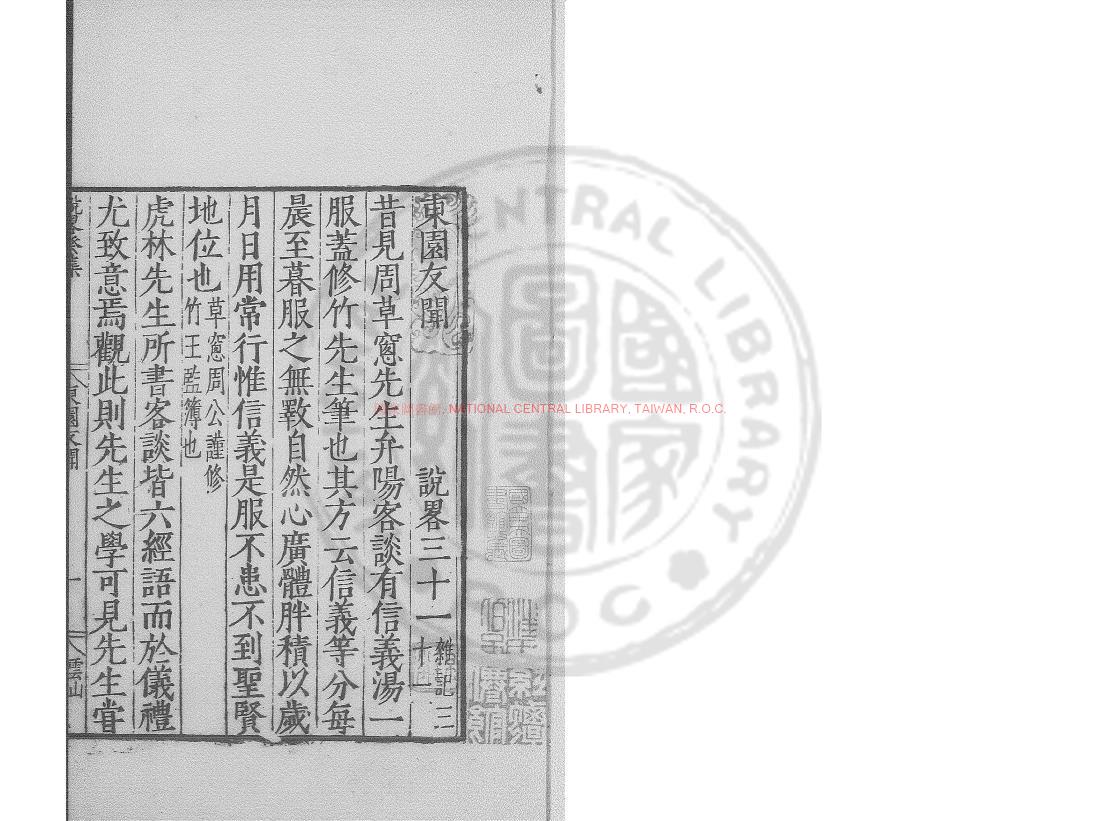 東園友聞 說畧三十一 雜記三十
昔見周草窻先生弁陽客談有信義湯一
服蓋修竹先生筆也其方云信義等分每
晨至暮服之無斁自然心廣體胖積以歲
月日用常行惟信義是服不患不到聖賢
地位也 草窻周公謹修
竹王監簿也
虎林先生所書客談皆六經語而於儀禮
尤致意焉觀此則先生之學可見先生甞
東園友聞 一 雲山
NATIONAL CENTRAL LIBRARY, TAIWAN, R.O.C.
CENTRAL LIBRARY
國家圖書館